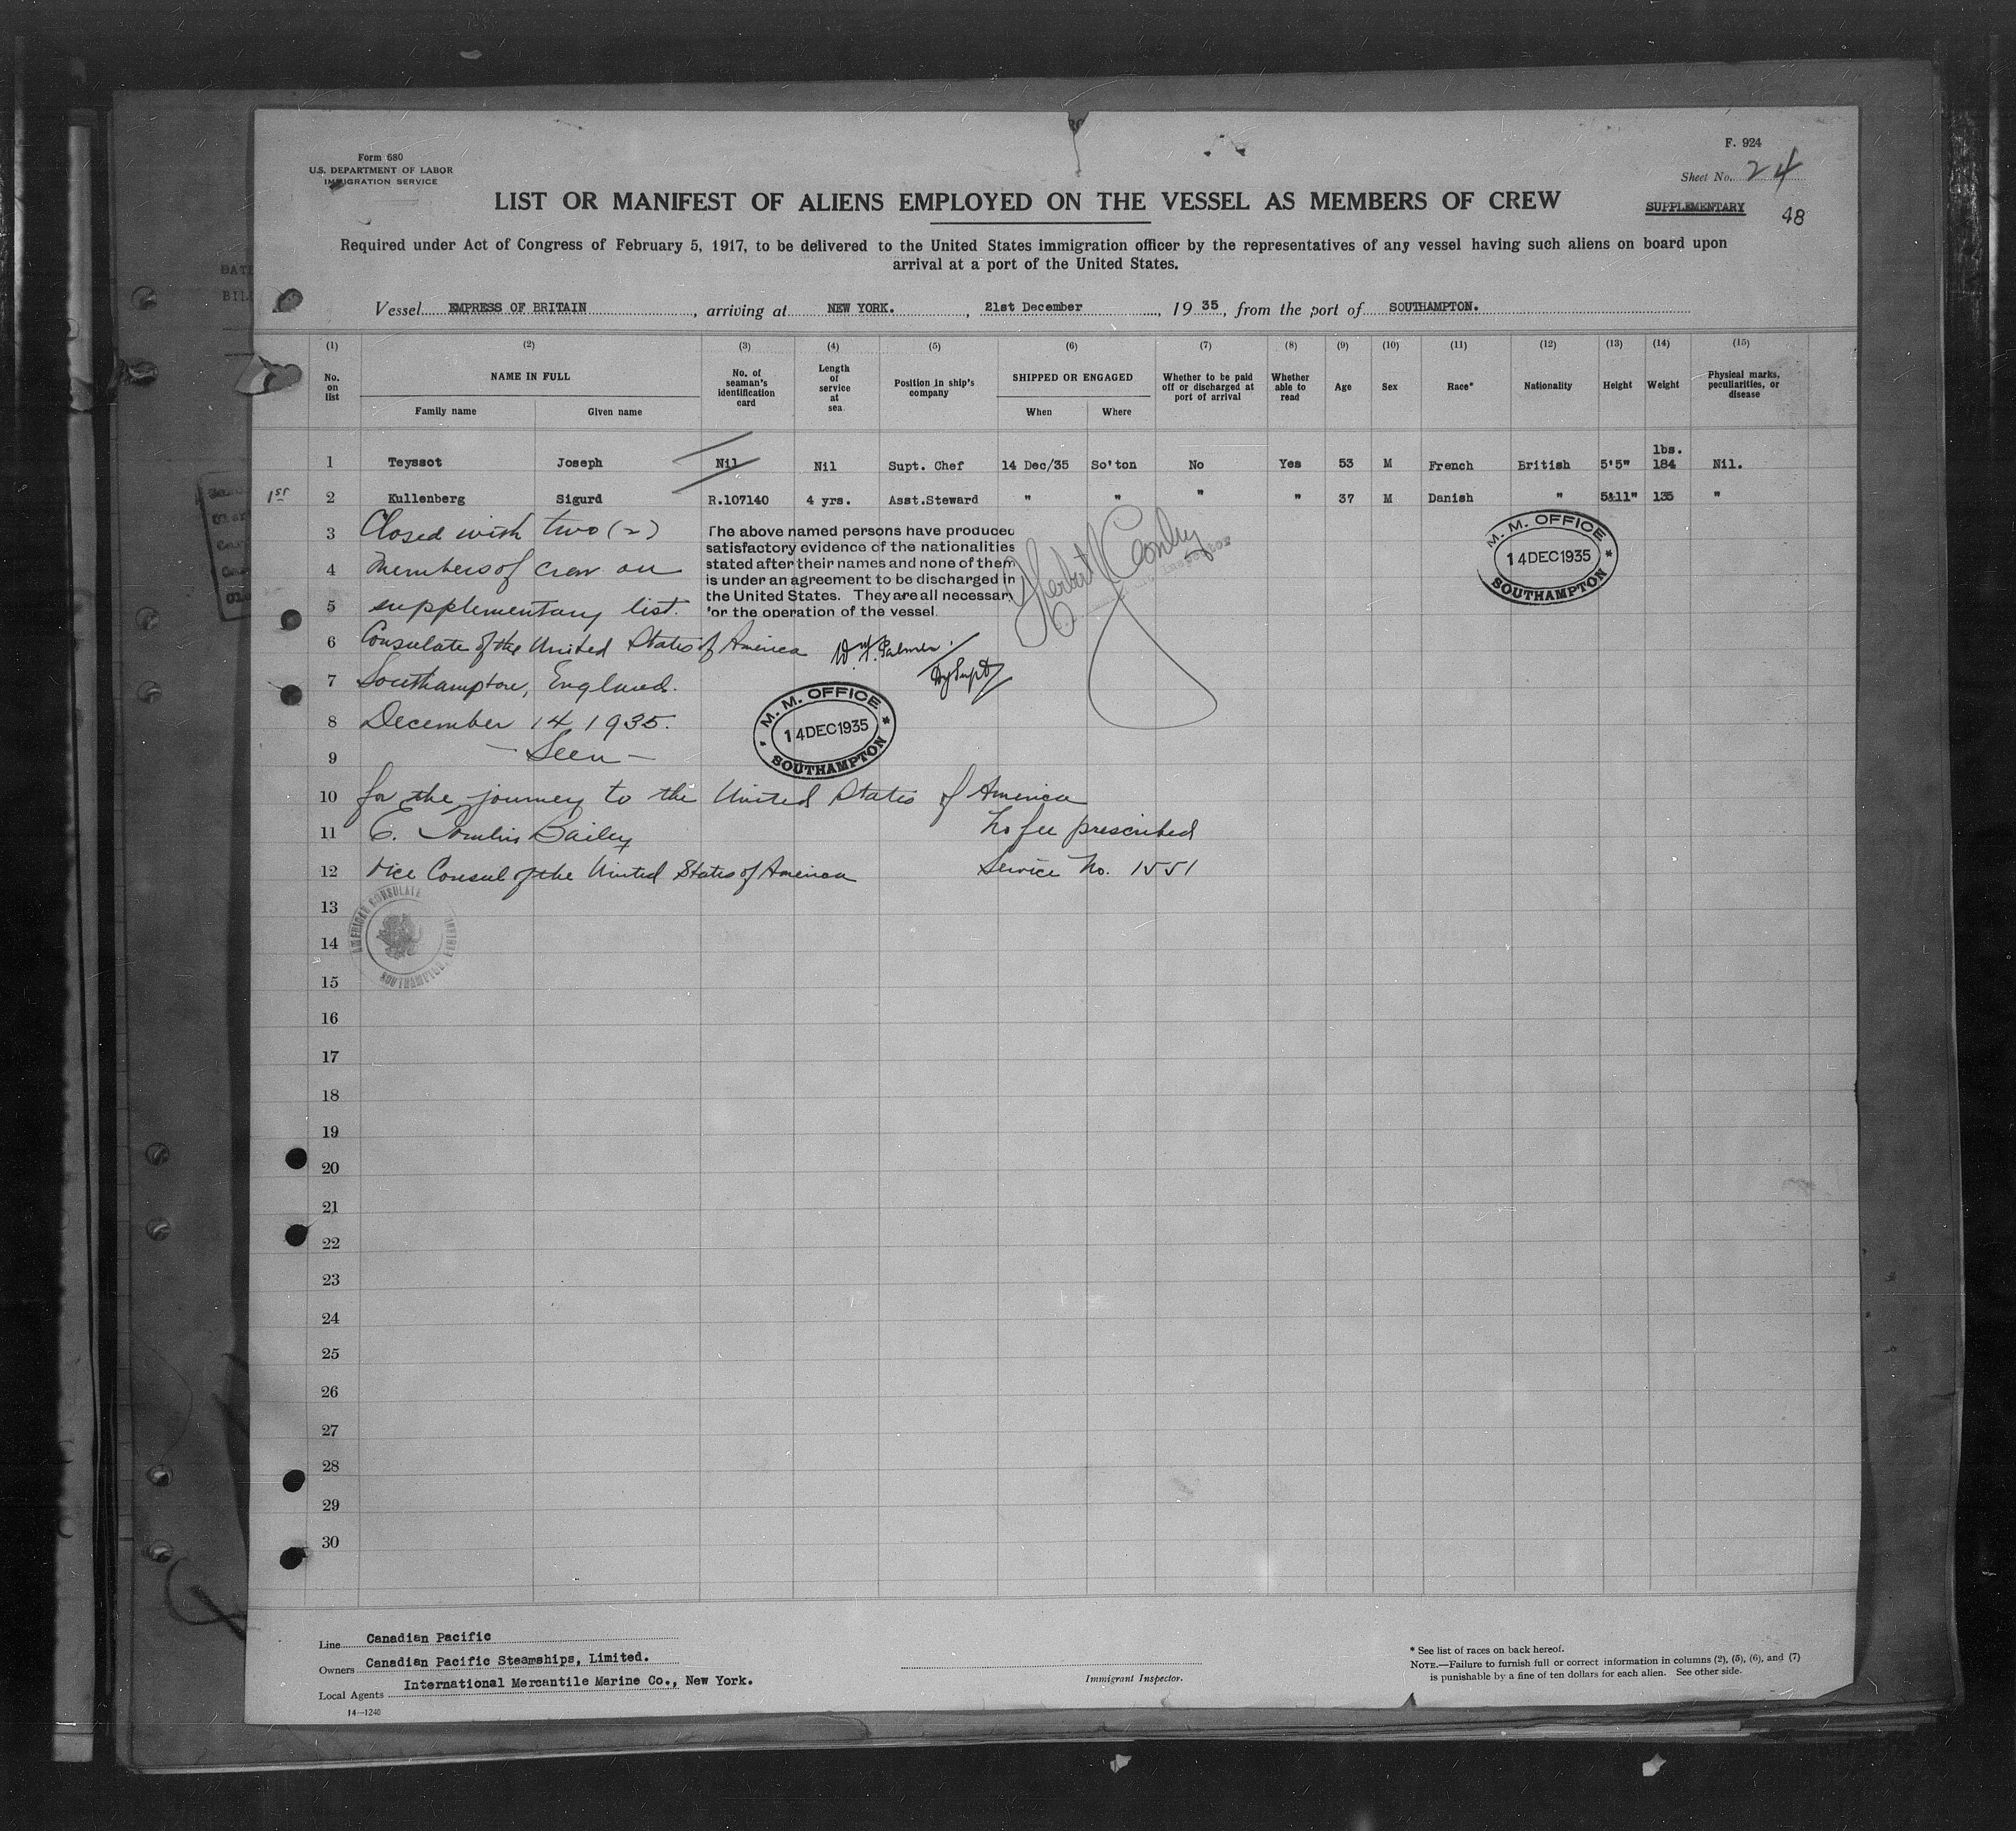 Form 680
U.S. DEPARTMENT OF LABOR
IMMIGRATION SERVICE
F. 924
Sheet No. 24
SUPPLEMENTARY
48
LIST OR MANIFEST OF ALIENS EMPLOYED ON THE VESSEL AS MEMBERS OF CREW
Required under Act of Congress of February 5, 1917, to be delivered to the United States immigration officer by the representatives of any vessel having such aliens on board upon
arrival at a port of the United States.
Vessel EMPRESS OF BRITAIN, arriving at NEW YORK., 21st December, 1935, from the port of SOUTHAMPTON.
(1) (2) (3) (4) (5) (6) (7) (8) (9) (10) (11) (12) (13) (14) (15)
No. on list
NAME IN FULL
Family name Given name
No. of seaman's identification card
Length of service at sea
Position in ship's company
SHIPPED OR ENGAGED
When Where
Whether to be paid off or discharged at port of arrival
Whether able to read
Age
Sex
Race*
Nationality
Height
Weight
Physical marks, peculiarities, or disease
lbs.
1 Teyssot Joseph Nil Nil Supt. Chef 14 Dec/35 So'ton No Yes 53 M French British 5'5" 184 Nil.
1st 2 Kullenberg Sigurd R.107140 4 yrs. Asst.Steward " " " " 37 M Danish " 5'11" 135 "
3 Closed with two (2)
4 members of crew on
5 supplementary list.
The above named persons have produced
satisfactory evidence of the nationalities
stated after their names and none of them
is under an agreement to be discharged in
the United States. They are all necessary
for the operation of the vessel.
M. M. OFFICE
14DEC1935
SOUTHAMPTON
6 Consulate of the United States of America
W. Palmer
Dy Supt
7 Southampton, England.
8 December 14 1935.
9 - Seen -
M. M. OFFICE
14DEC1935
SOUTHAMPTON
10 for the journey to the United States of America
11 E. Tomlin Bailey No fee prescribed
12 Vice Consul of the United States of America Service No. 1551
AMERICAN CONSULATE
SOUTHAMPTON, ENGLAND
13
14
15
16
17
18
19
20
21
22
23
24
25
26
27
28
29
30
Line Canadian Pacific
Owners Canadian Pacific Steamships, Limited.
Local Agents International Mercantile Marine Co., New York.
14—1240
Immigrant Inspector.
* See list of races on back hereof.
NOTE.—Failure to furnish full or correct information in columns (2), (5), (6), and (7)
is punishable by a fine of ten dollars for each alien. See other side.